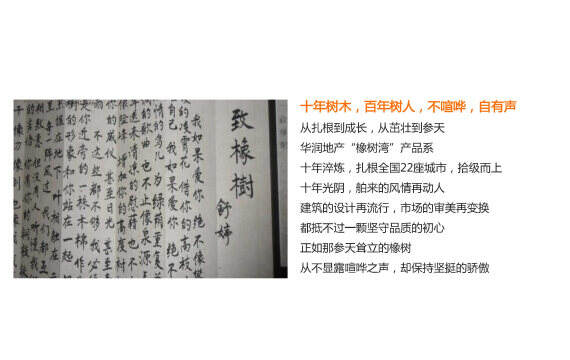 致橡樹
舒婷
我如果爱你 绝不像
的凌霄花 借你的高枝
自己 我如果爱你 绝不
情的鸟儿 为绿荫重复
的歌曲 也不止像泉源
年送来清凉的慰藉 也不
像险峰 增加你的高度 衬
你的威仪 甚至日光 甚至
不 这些都还不够 我必
是你近旁的一株木棉 作
的形象和你站在一起
十年树木，百年树人，不喧哗，自有声
从扎根到成长，从茁壮到参天
华润地产“橡树湾”产品系
十年淬炼，扎根全国22座城市，拾级而上
十年光阴，舶来的风情再动人
建筑的设计再流行，市场的审美再变换
都抵不过一颗坚守品质的初心
正如那参天耸立的橡树
从不显露喧哗之声，却保持坚挺的骄傲